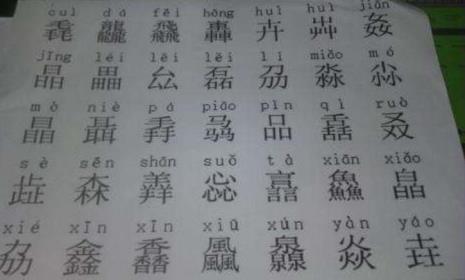 cuì dá fēi hōng huì huì jiān
毳 龘 飝 轟 卉 芔 姦
jīng léi lěi lěi lí miǎo mó
晶 畾 厽 磊 刕 淼 尛
mò niè pá piāo pǐn qì ruò
瞐 聶 掱 骉 品 叒
sè sēn shān suǒ tà xiān xiǎo
歮 森 羴 惢 譶 鱻 皛
xié xīn xīn xiū xún yàn yáo
劦 鑫 馫 飍 灥 焱 垚